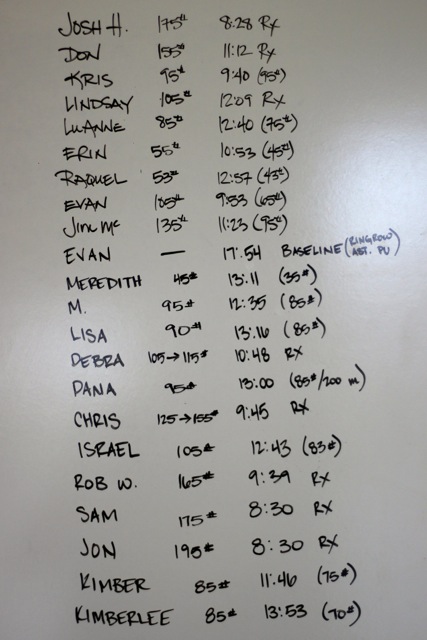 JOSH H. 175# 8:28 Rx
DON 155# 11:12 Rx
KRIS 95# 9:40 (95#)
LINDSAY 105# 12:09 Rx
LUANNE 85# 12:40 (75#)
ERIN 55# 10:53 (45#)
RAQUEL 53# 12:57 (43#)
EVAN 185# 9:53 (65#)
Jim Mc 135# 11:23 (95#)
EVAN — 17:54 BASELINE (RINGROW/ ABT. PU)
MEREDITH 45# 13:11 (35#)
M. 95# 12:35 (85#)
LISA 90# 13:16 (85#)
DEBRA 105→115# 10:48 RX
DANA 95# 13:00 (85#/200 m)
CHRIS 125→155# 9:45 RX
ISRAEL 105# 12:43 (83#)
ROB W. 165# 9:39 RX
SAM 175# 8:30 RX
JON 195# 8:30 RX
KIMBER 85# 11:46 (75#)
KIMBERLEE 85# 13:53 (70#)